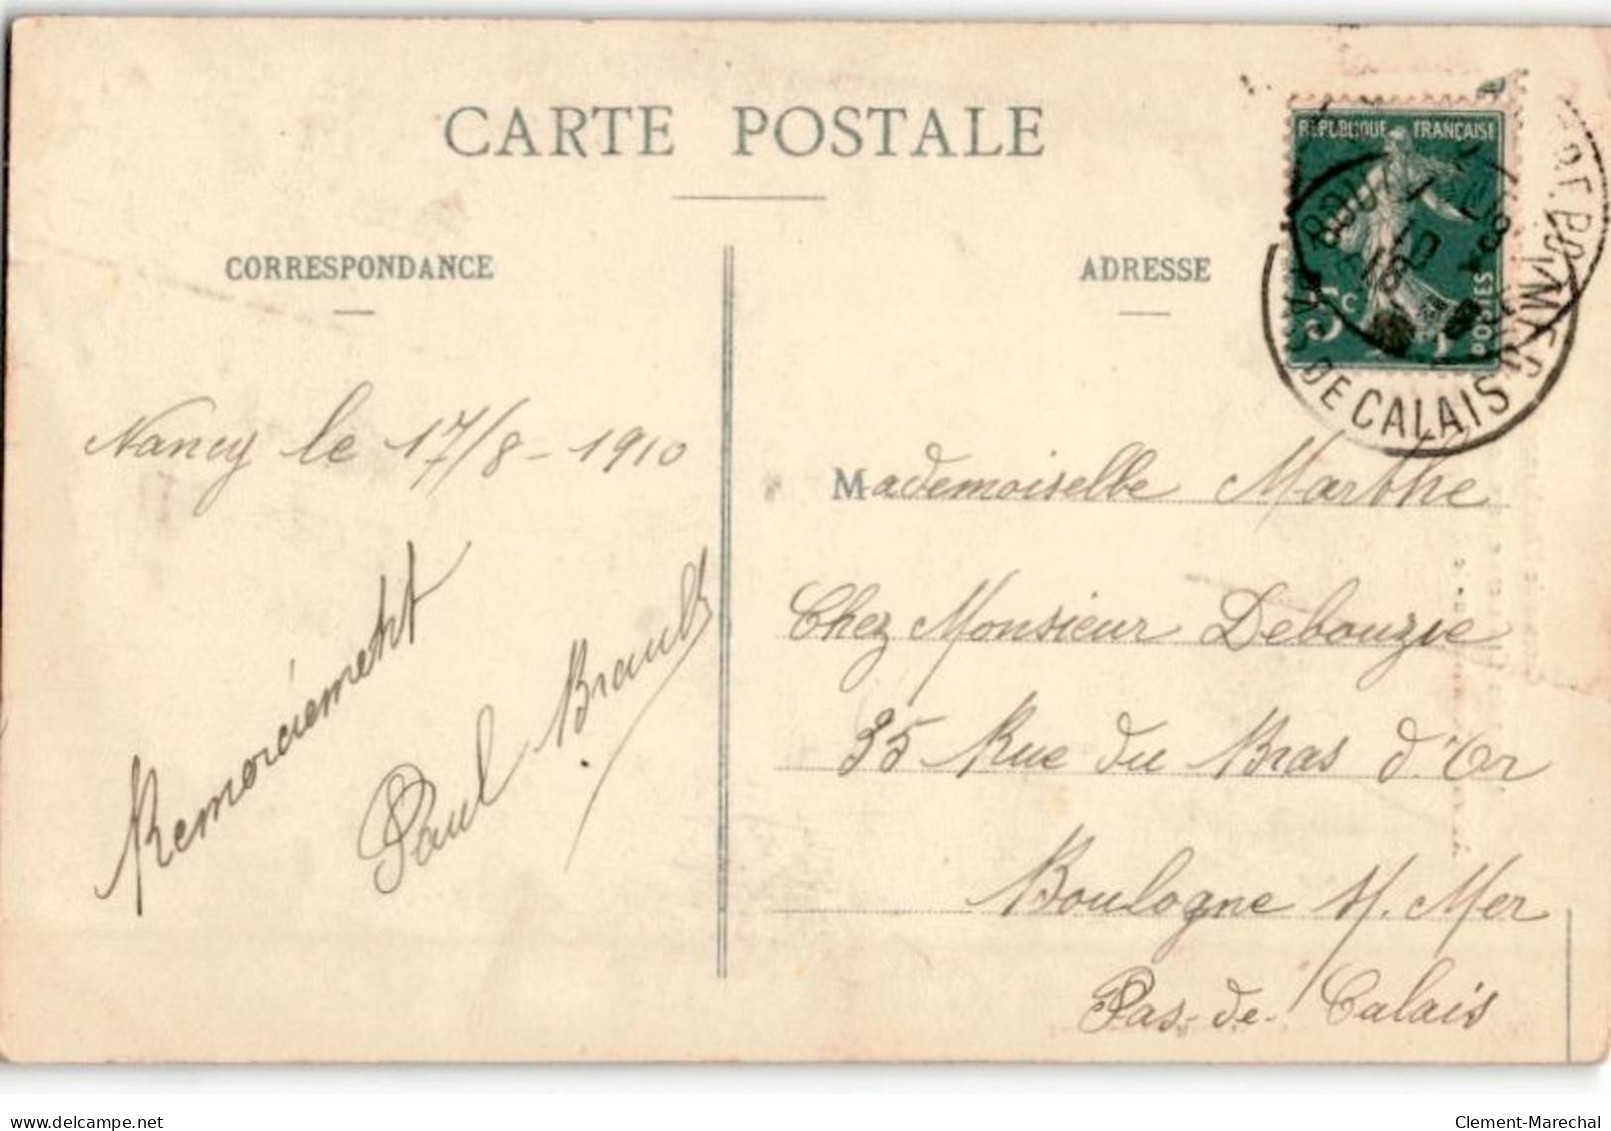 CARTE POSTALE
CORRESPONDANCE
ADRESSE
RÉPUBLIQUE FRANÇAISE
5c
POSTES
DE CALAIS
Nancy le 17/8 - 1910
Remerciement
Paul Brault
Mademoiselle Marthe
Chez Monsieur Debouzie
35 Rue du Bras d'Or
Boulogne s/. Mer
Pas-de-Calais
delcampe.net
Clement-Marechal